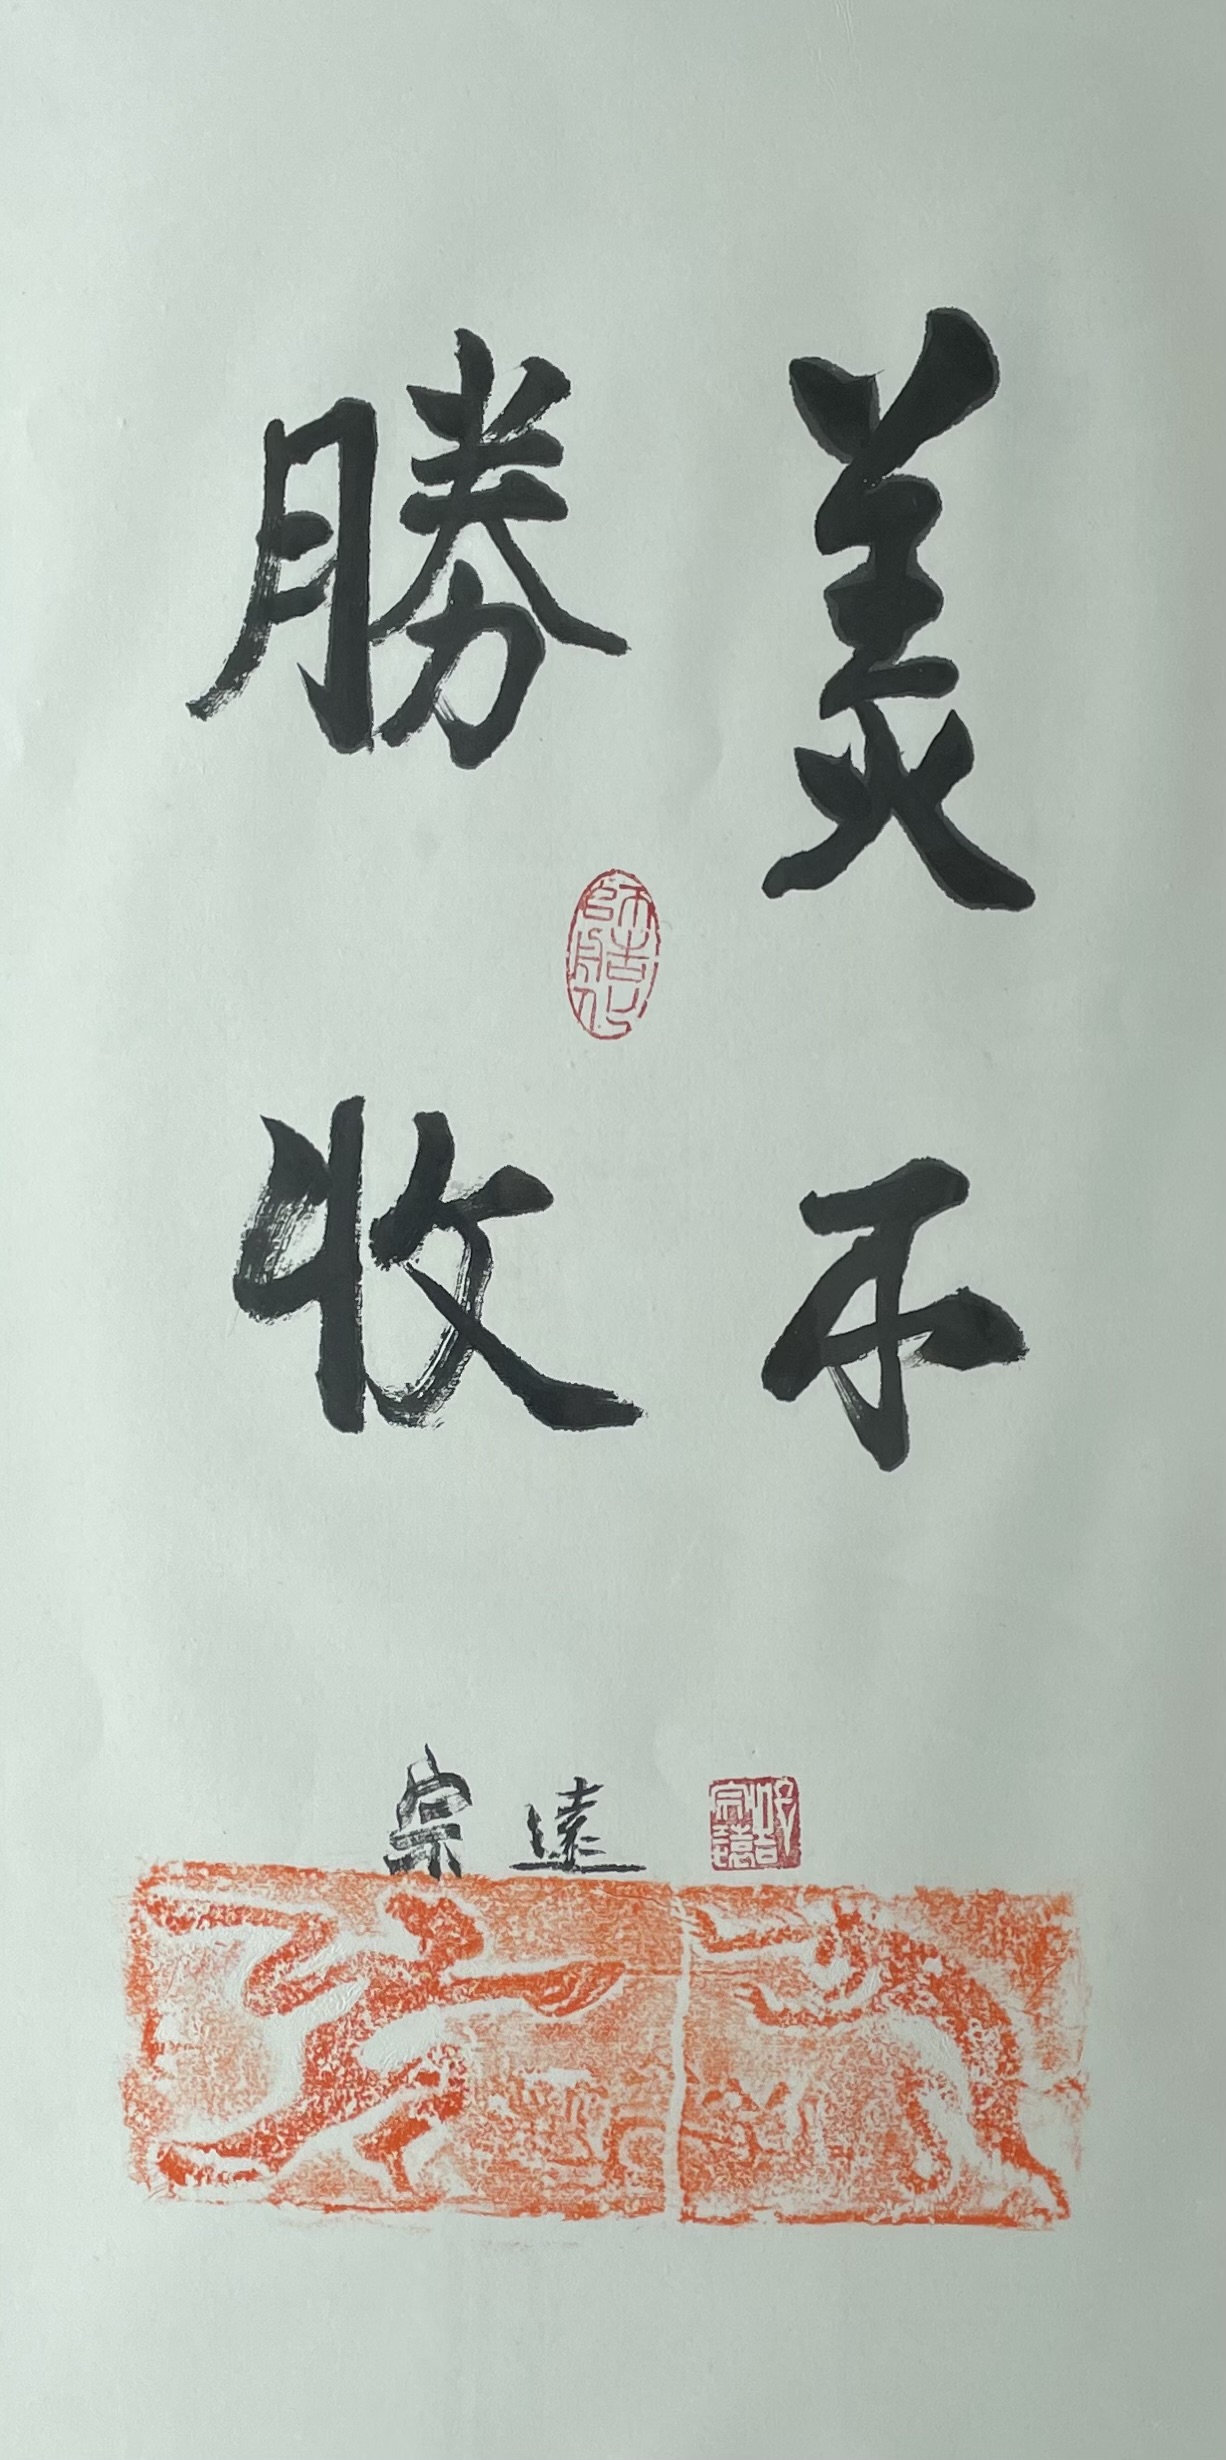 美不
勝收
宗遠